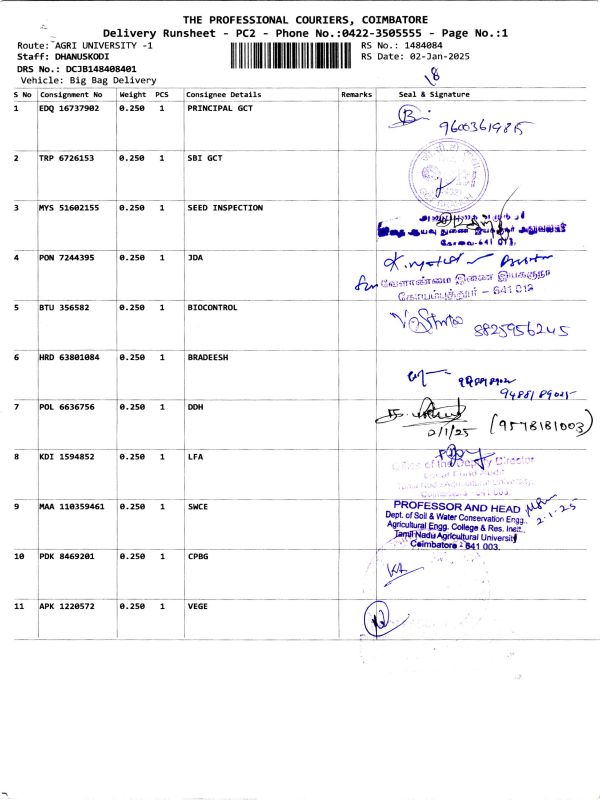 THE PROFESSIONAL COURIERS, COIMBATORE
Delivery Runsheet - PC2 - Phone No.:0422-3505555 - Page No.:1
Route: AGRI UNIVERSITY -1
RS No.: 1484084
Staff: DHANUSKODI
RS Date: 02-Jan-2025
DRS No.: DCJB148408401
Vehicle: Big Bag Delivery
18
S No Consignment No Weight PCS Consignee Details Remarks Seal & Signature
1 EDQ 16737902 0.250 1 PRINCIPAL GCT
9600361985
2 TRP 6726153 0.250 1 SBI GCT
3 MYS 51602155 0.250 1 SEED INSPECTION
கோவை-641 013.
4 PON 7244395 1 0.250 JDA
வேளாண்மை இணை இயக்குநர்
கோயம்புத்தூர் - 641 013
5 BTU 356582 0.250 1 BIOCONTROL
8825956245
6 HRD 63801084 0.250 1 BRADEESH
7 POL 6636756 0.250 1 DDH
2/1/25 (9578181003)
8 KDI 1594852 0.250 1 LFA
Office of the Deputy Director
Local Fund Audit
Tamil Nadu Agricultural University,
Coimbatore - 641 003.
9 MAA 110359461 0.250 1 SWCE
PROFESSOR AND HEAD
2.1.25
Dept. of Soil & Water Conservation Engg.,
Agricultural Engg. College & Res. Inst.,
Tamil Nadu Agricultural University
Coimbatore - 641 003.
10 PDK 8469201 0.250 1 CPBG
11 APK 1220572 0.250 1 VEGE